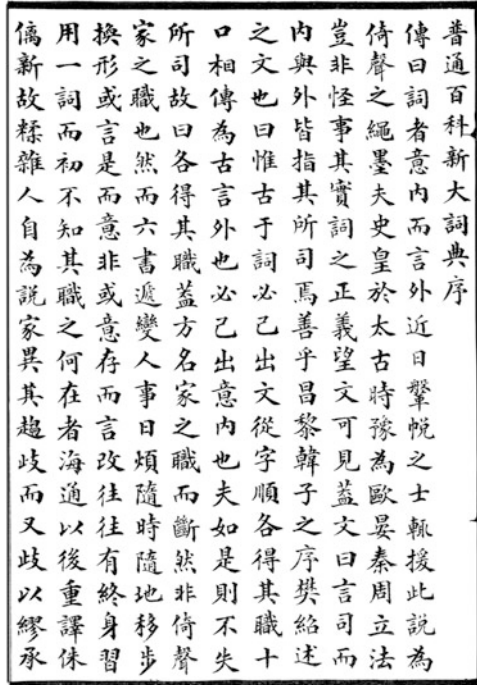 普通百科新大詞典序
傳曰詞者意內而言外近日鞶帨之士輒援此說為
倚聲之繩墨夫史皇於太古時豫為歐晏秦周立法
豈非怪事其實詞之正義望文可見蓋文曰言司而
內與外皆指其所司焉善乎昌黎韓子之序樊紹述
之文也曰惟古于詞必己出文從字順各得其職十
口相傳為古言外也必己出意內也夫如是則不失
所司故曰各得其職蓋方名家之職而斷然非倚聲
家之職也然而六書遞變人事日煩隨時隨地移步
換形或言是而意非或意存而言改往往有終身習
用一詞而初不知其職之何在者海通以後重譯侏
僪新故糅雜人自為說家異其趨歧而又歧以繆承